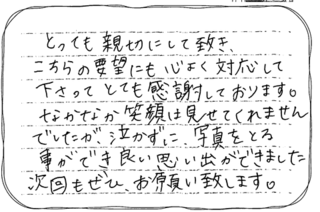 とっても親切にして致き、
こちらの要望にも心よく対応して
下さってとても感謝しております。
なかなか笑顔は見せてくれません
でしたが泣かずに、写真をとる
事ができ良い思い出ができました
次回もぜひ、お願い致します。